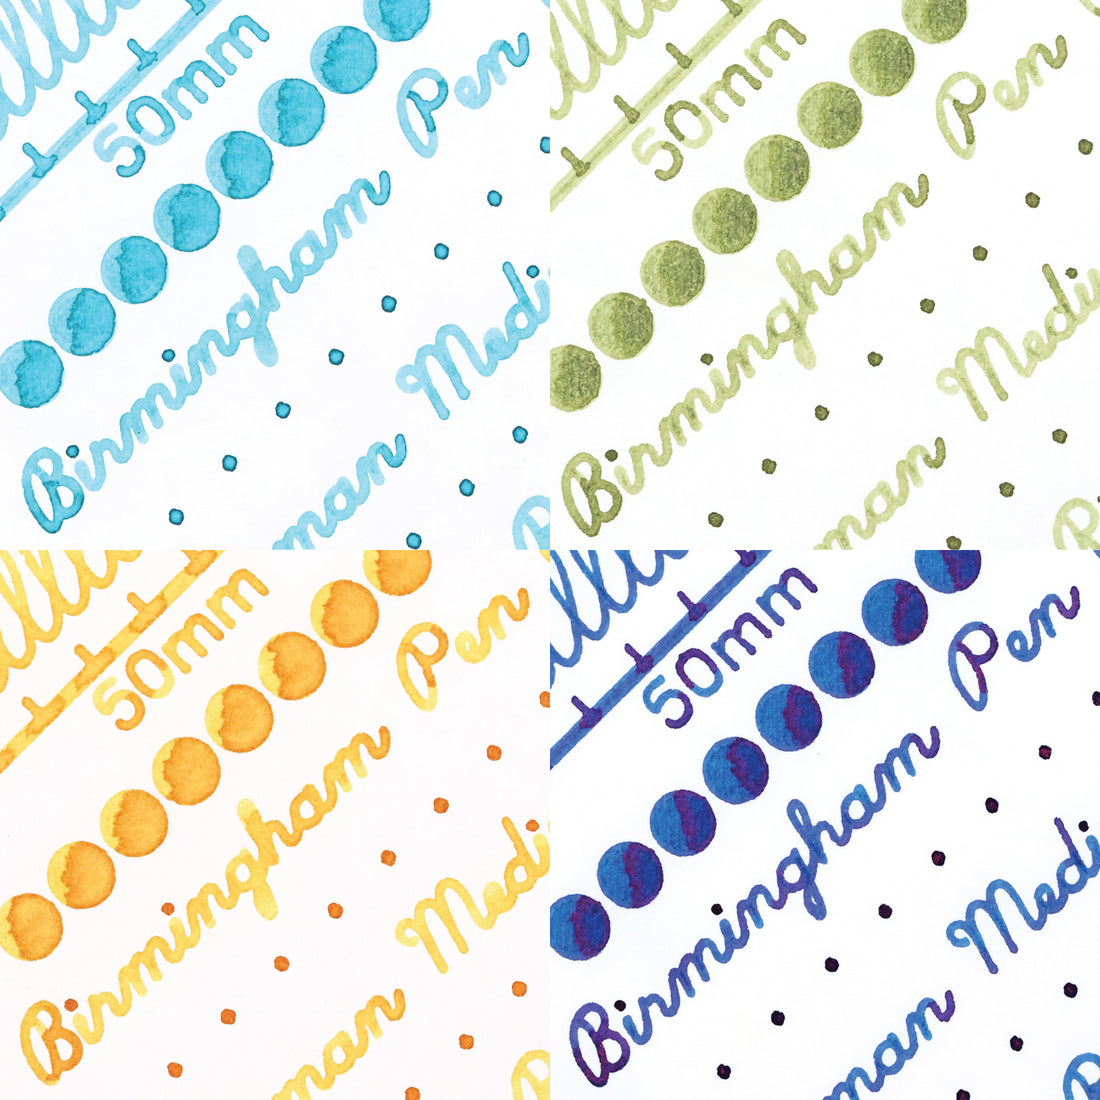 50mm
Pen
Birmingham
Medi
man
50mm
Pen
Birmingham
Medi
man
50mm
Pen
Birmingham
Medi
man
50mm
Pen
Birmingham
Medi
man